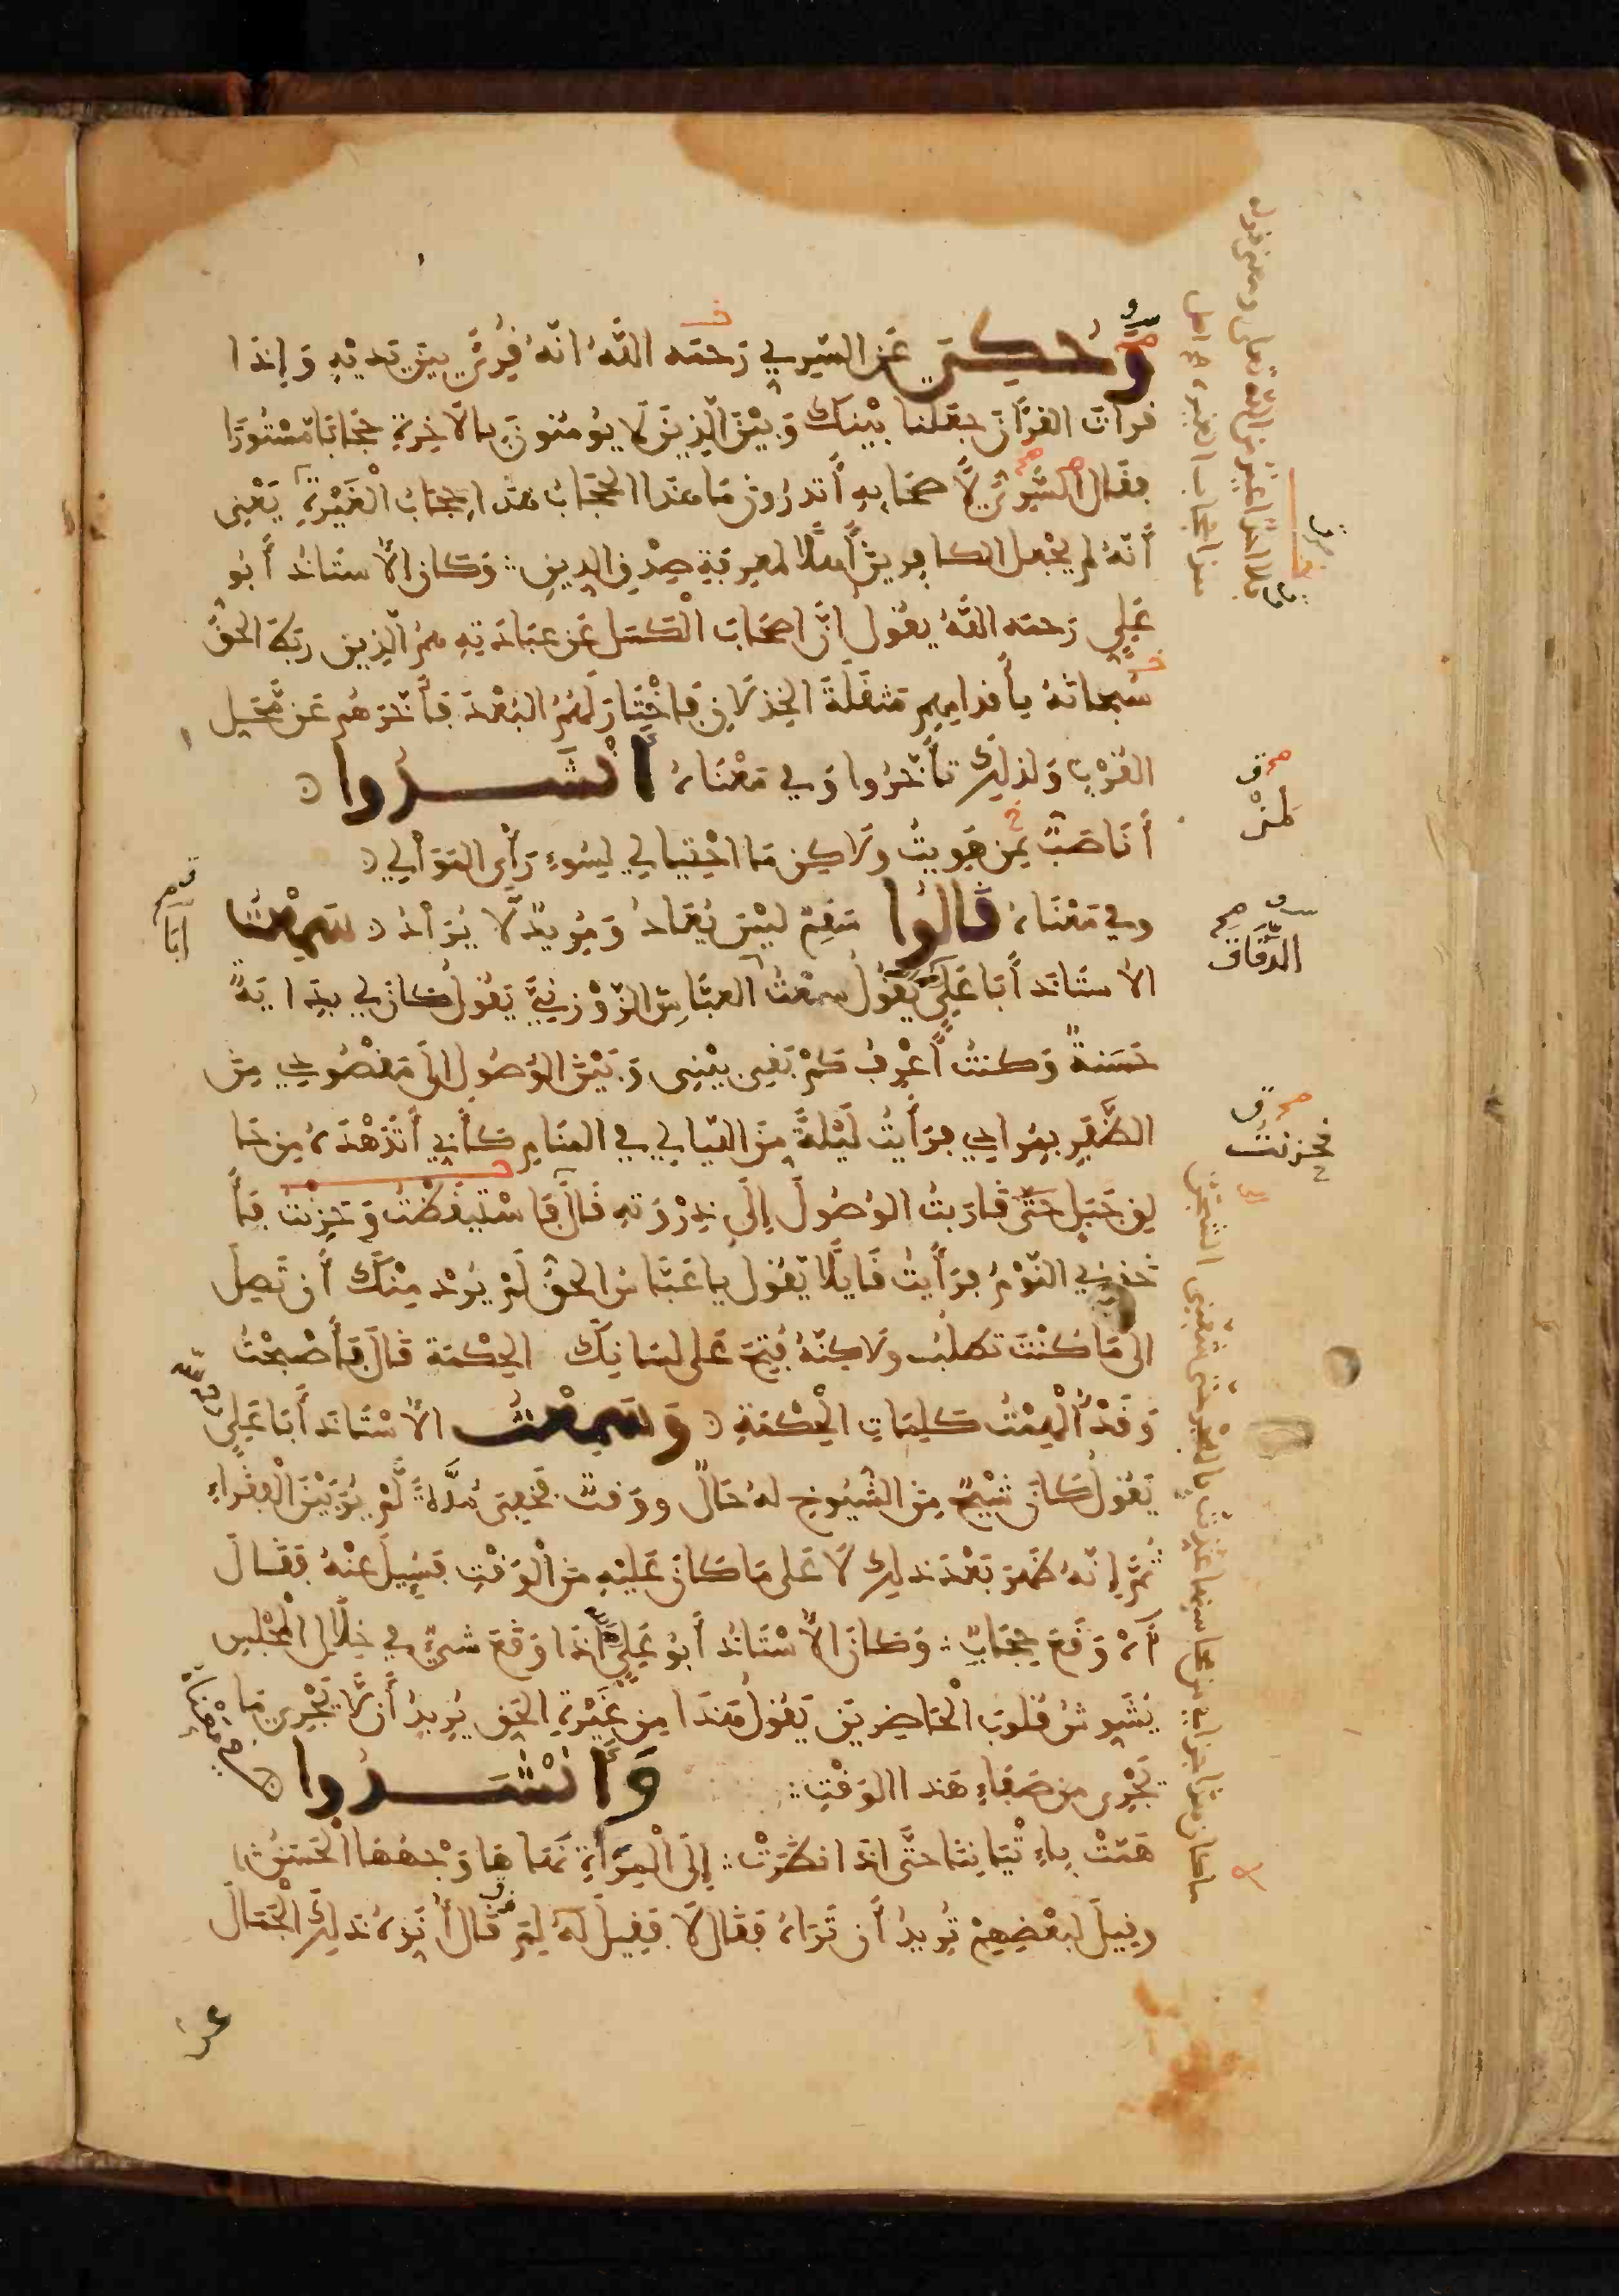 وَحُكِيَ عَنِ السَّرِي رَحمَه اللَّهُ انّهُ قُرِئَ بيْنَ يَديْهِ وَإِذَا
قرأتَ القرْآنَ جعَلنا بيْنَكَ وَبيْنَ الَّذِينَ لَا يؤمنونَ بالآخِرةِ حِجَابًا مَسْتُورًا
فقَال السَّرِيُّ لأصحَابِهِ أَتدرُونَ مَا هذَا الحِجَابُ هذَا حِجَابُ الْغَيْرةِ يَعْنِى
أَنّهُ لم يجْعل الكافِرينَ أَهلًا لمعرفةِ صِدْقِ الدِينِ ؞ وَكَانَ الأُستَاذ أَبُو
عَلِي رَحمَه اللَّهُ يقُول انَّ اصحَابَ الْكسَل عَن عبَادَتِهِ همُ الَّذِينَ ربَطَ الحَقُّ
سُبحانَهُ بأقدامِهم مَثقَلَةَ الخِذلَانِ فَاخْتَارَ لَهُمُ البُعْدَ فأَخّرَهُم عَن مَّحَل
القُرْبِ وَلذلِكَ تأَخّرُوا وَفي مَعْنَاهُ أَنْشَدُوا
أَنَا صَبٌّ بمَن هَوِيتُ ولَاكِن مَا احْتِيَالِي لِسُوءِ رَأْيِ المَوَالِي
وفي مَعْنَاهُ قَالُوا سَقِيمٌ ليْسَ يُعَادُ وَمُرِيدٌ لَّا يُرَادُ سَمِعْتُ
الأستَاذ أَبَا عَلِيٍّ يَقُولُ سمعْتُ العبَّاسَ الزَّوْزنِيَّ يَقُولُ كَانَ لِي بِدَايَةٌ
حَسَنةٌ وَكنتُ أَعْرِفُ كَمْ بَقِيَ بيْنِى وَبَيْنَ الوُصُولِ الَى مَقْصُودِي مِنَ
الظَّفَرِ بمُرَادِي فرَأَيتُ لَيْلةً مِنَ اللّيَالِي فِي المنَامِ كأَنِّي أَتَدَهْدَهُ مِن حَا
لِقِ جَبَلٍ حَتَّى قارَبتُ الوُصُولَ إِلَى ذِرْوَتِهِ قَالَ فَاسْتَيقَظْتُ وَحَزِنْتُ فأَ
خَذنِي النّوْمُ فرَأَيتُ قَايلًا يَقُول ياعَبَّاسُ الحَقُّ لَمْ يُرِدْ مِنْكَ أَن تَصِلَ
الى مَا كنْتَ تَطلبُ ولَاكِنّهُ فُتِحَ عَلى لسَانِكَ الحِكْمَة قَالَ فأَصْبَحْتُ
وَقَدْ أُلْهِمْتُ كَلِمَاتِ الحِكْمَةِ وَسَمِعْتُ الأسْتَاذَ أَبَا عَلِيٍّ
يَقُولُ كَانَ شَيْخٌ مِنَ الشُّيُوخِ لهُ حَالٌ ووَقتٌ فخَفِيَ مُدَّةً لَّمْ يُرَ بيْنَ الفُقَراءِ
ثُمَّ إِنّهُ ظَهَرَ بَعْدَ ذلِكَ لَا عَلى مَا كَانَ عَليْهِ مِنَ الْوَقْتِ فسُيلَ عَنْهُ فقَالَ
آهْ وَقَعَ حِجَابٌ ؞ وَكَانَ الأسْتَاذُ أَبُو عَلِيٍّ اذَا وَقَعَ شيْءٌ فِي خِلَالِ الْمجْلِس
يُشَوِّشُ قلُوبَ الْحَاضِرينَ يَقُولُ هَذَا مِن غَيْرَةِ الحَقِّ يُرِيدُ أَن لَّا يَجْرِيَ مَا
يَجْرِى مِن صَفَاءِ هَذا الوَقْتِ ؞ وَأَنْشَدُوا فِي مَعْنَاهُ
هَمَّتْ بِإِتْيَانِنَا حتَّى اذَا نَظَرَتْ ؞ إِلَى الْمِرْآةِ نَهَاهَا وَجْهُهَا الْحَسَنُ
وقِيلَ لبَعْضِهِمْ تُرِيدُ أَن تَرَاهُ فقَال لَا فقِيلَ لَهُ لِمَ قَالَ أُنَزِّهُ ذلِكَ الْجَمَالَ
عن
لَهُمْ
الدَّقَّاق
فحزنتُ
أَبَا